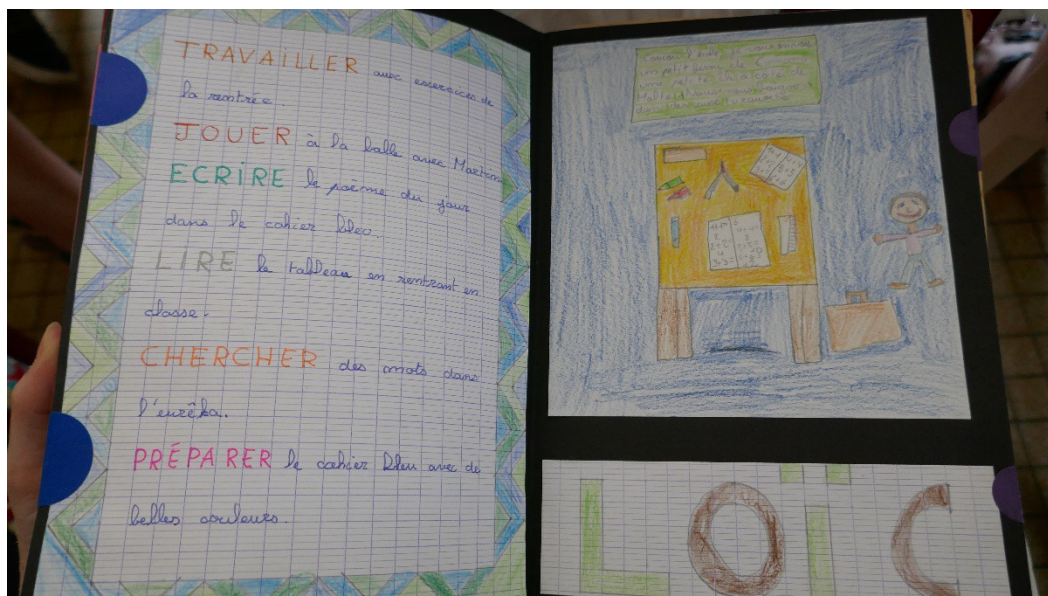 TRAVAILLER aux exercices de
la rentrée.
JOUER à la balle avec Martin
ECRIRE le poème du jour
dans le cahier bleu.
LIRE le tableau en rentrant en
classe.
CHERCHER des mots dans
l'eurêka.
PRÉPARER le cahier bleu avec de
belles couleurs.
un petit
LOÏC